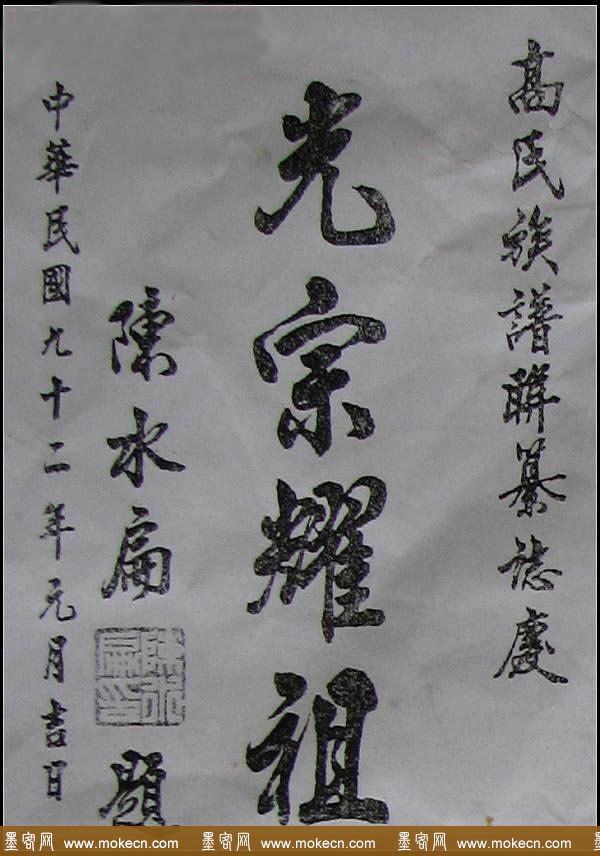 高氏族譜聯纂誌慶
光宗耀祖
陳水扁
陳水扁印
題
中華民國九十二年元月吉日
墨客网 www.mokecn.com 墨客网 www.mokecn.com 墨客网 www.mokecn.com